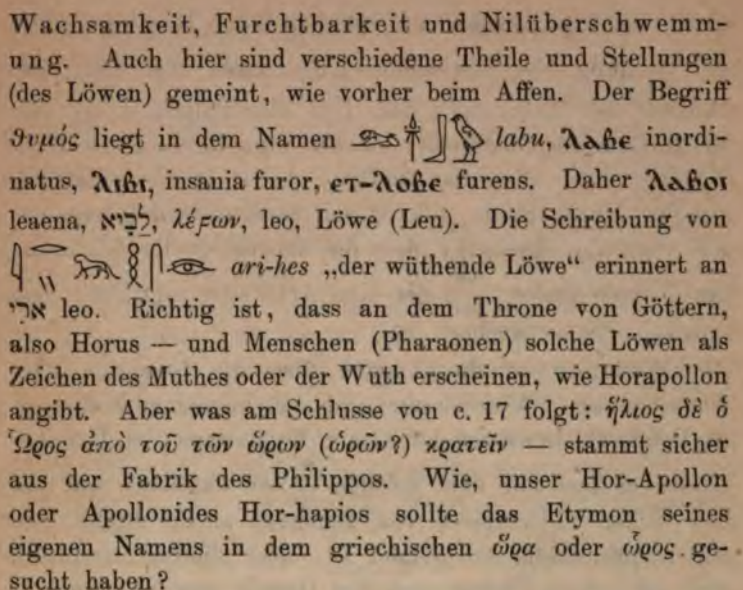 Wachsamkeit, Furchtbarkeit und Nilüberschwemm-
ung. Auch hier sind verschiedene Theile und Stellungen
(des Löwen) gemeint, wie vorher beim Affen. Der Begriff
θυμός liegt in dem Namen labu, ⲗⲁⲃⲉ inordi-
natus, ⲗⲓⲃⲓ, insania furor, ⲉⲧ-ⲗⲟⲃⲉ furens. Daher ⲗⲁⲃⲟⲓ
leaena, לָבִיא, λέϝων, leo, Löwe (Leu). Die Schreibung von
ari-hes „der wüthende Löwe“ erinnert an
ארי leo. Richtig ist, dass an dem Throne von Göttern,
also Horus — und Menschen (Pharaonen) solche Löwen als
Zeichen des Muthes oder der Wuth erscheinen, wie Horapollon
angibt. Aber was am Schlusse von c. 17 folgt: ἥλιος δὲ ὁ
Ὧρος ἀπὸ τοῦ τῶν ὥρων (ὡρῶν?) κρατεῖν — stammt sicher
aus der Fabrik des Philippos. Wie, unser Hor-Apollon
oder Apollonides Hor-hapios sollte das Etymon seines
eigenen Namens in dem griechischen ὥρα oder ὧρος ge-
sucht haben?